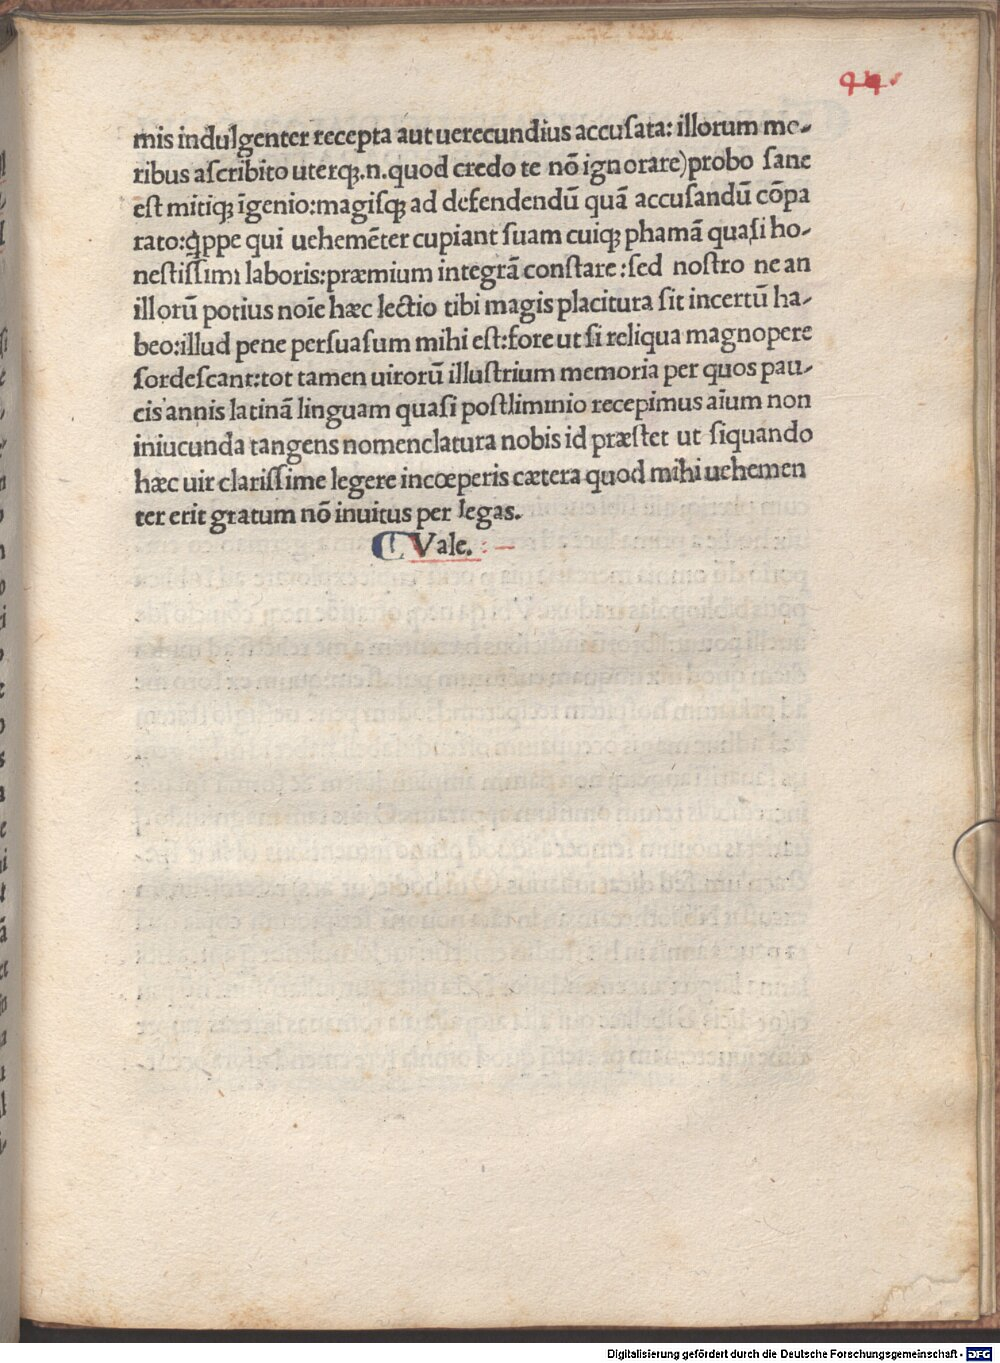 94.
mis indulgenter recepta aut uerecundius accusata: illorum mo-
ribus ascribito uterqꝫ.n.quod credo te nō ignorare)probo sane
est mitiqꝫ īgenio:magisqꝫ ad defendendū quā accusandū cōpa
rato:ꝗppe qui uehemēter cupiant suam cuiqꝫ phamā quasi ho-
nestissimi laboris:præmium integrā constare:sed nostro ne an
illorū potius noīe hæc lectio tibi magis placitura sit incertū ha-
beo:illud pene persuasum mihi est:fore ut si reliqua magnopere
sordescant:tot tamen uirorū illustrium memoria per quos pau-
cis annis latinā linguam quasi postliminio recepimus aīum non
iniucunda tangens nomenclatura nobis id præstet ut siquando
hæc uir clarissime legere incœperis cætera quod mihi uehemen
ter erit gratum nō inuitus per legas.
Vale.
Digitalisierung gefördert durch die Deutsche Forschungsgemeinschaft - DFG